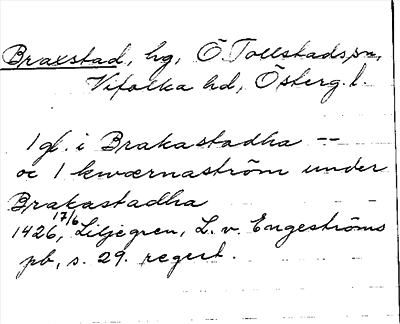 Braxstad, hg, Ö. Tollstads sn,
Vifolka hd, Österg. l.
1 gd. i Brakastadha --
oc 1 kwærnaström under
Brakastadha
1426 17/6, Liljegren, L. v. Engeströms
pb, s. 29. regest.